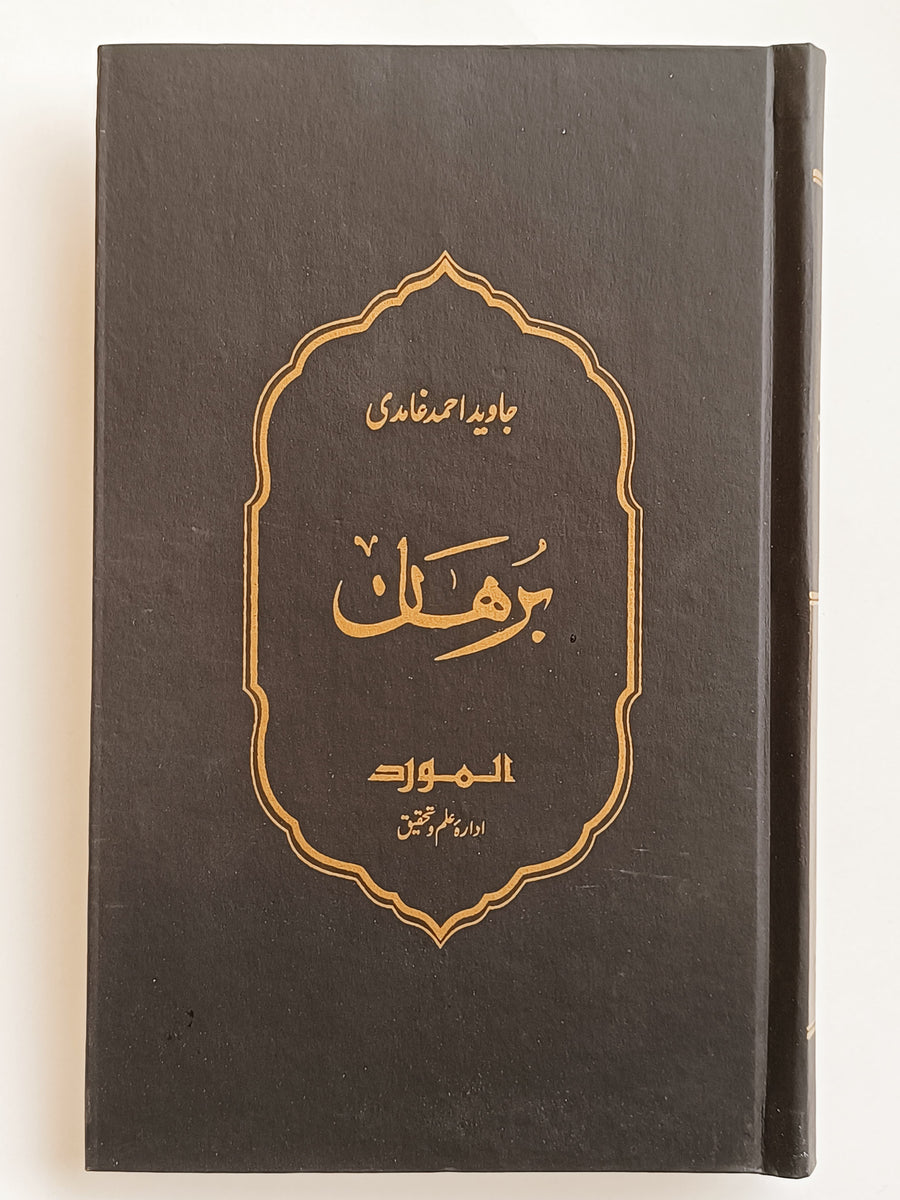 جاوید احمد غامدی
بُرھان
المورد
ادارۂ علم و تحقیق